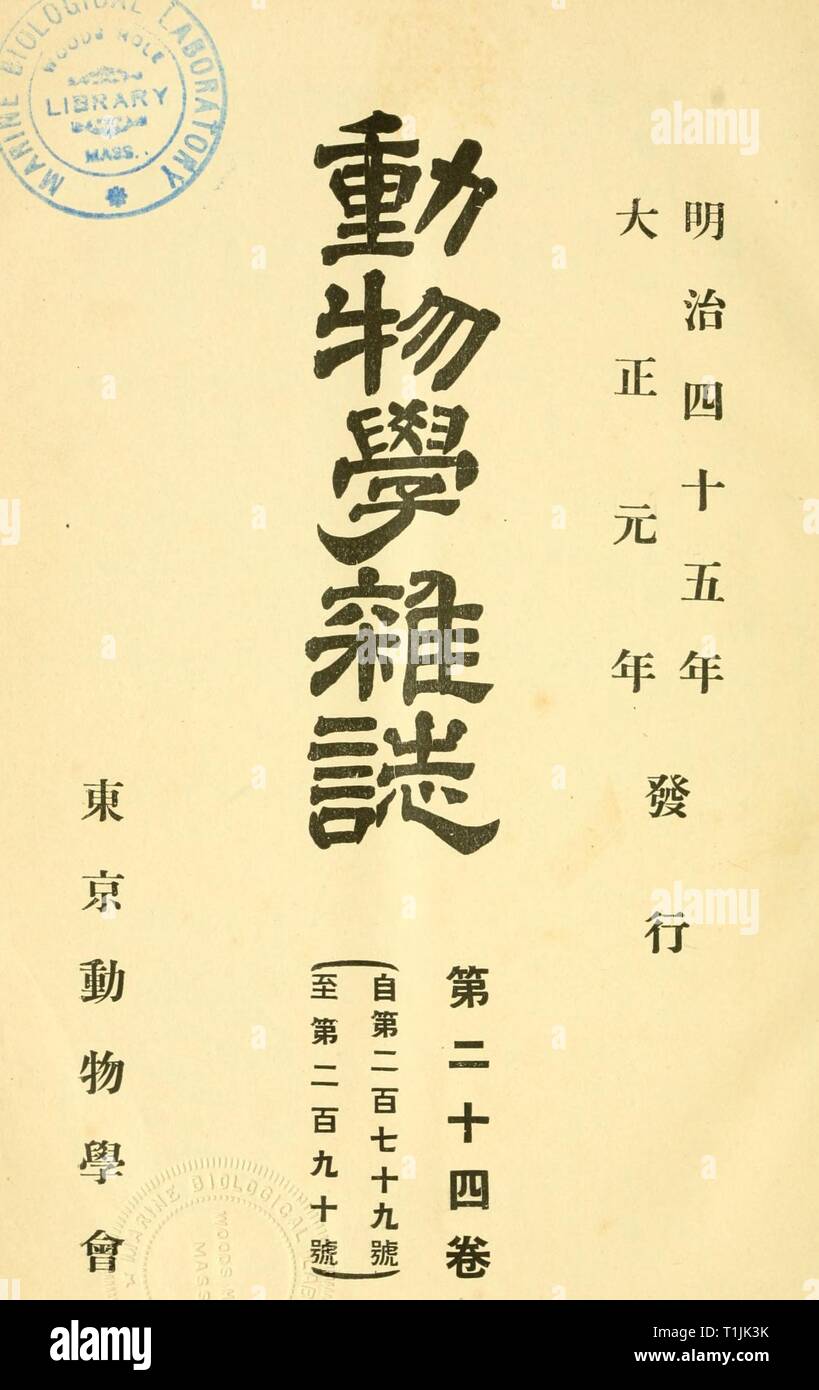 明治四十五年
大正元年
發行
動物學雜誌
第二十四卷
自第二百七十九號
至第二百九十號
東京動物學會
MARINE BIOLOGICAL LABORATORY
WOODS HOLE
LIBRARY
MASS.
MARINE BIOLOGICAL
WOODS
MASS
alamy
alamy
alamy
Image ID: T1JK3K
www.alamy.com